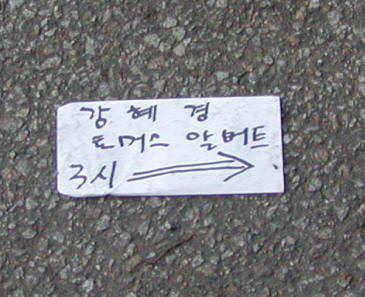 강 혜 경
토머스 알버트
3시